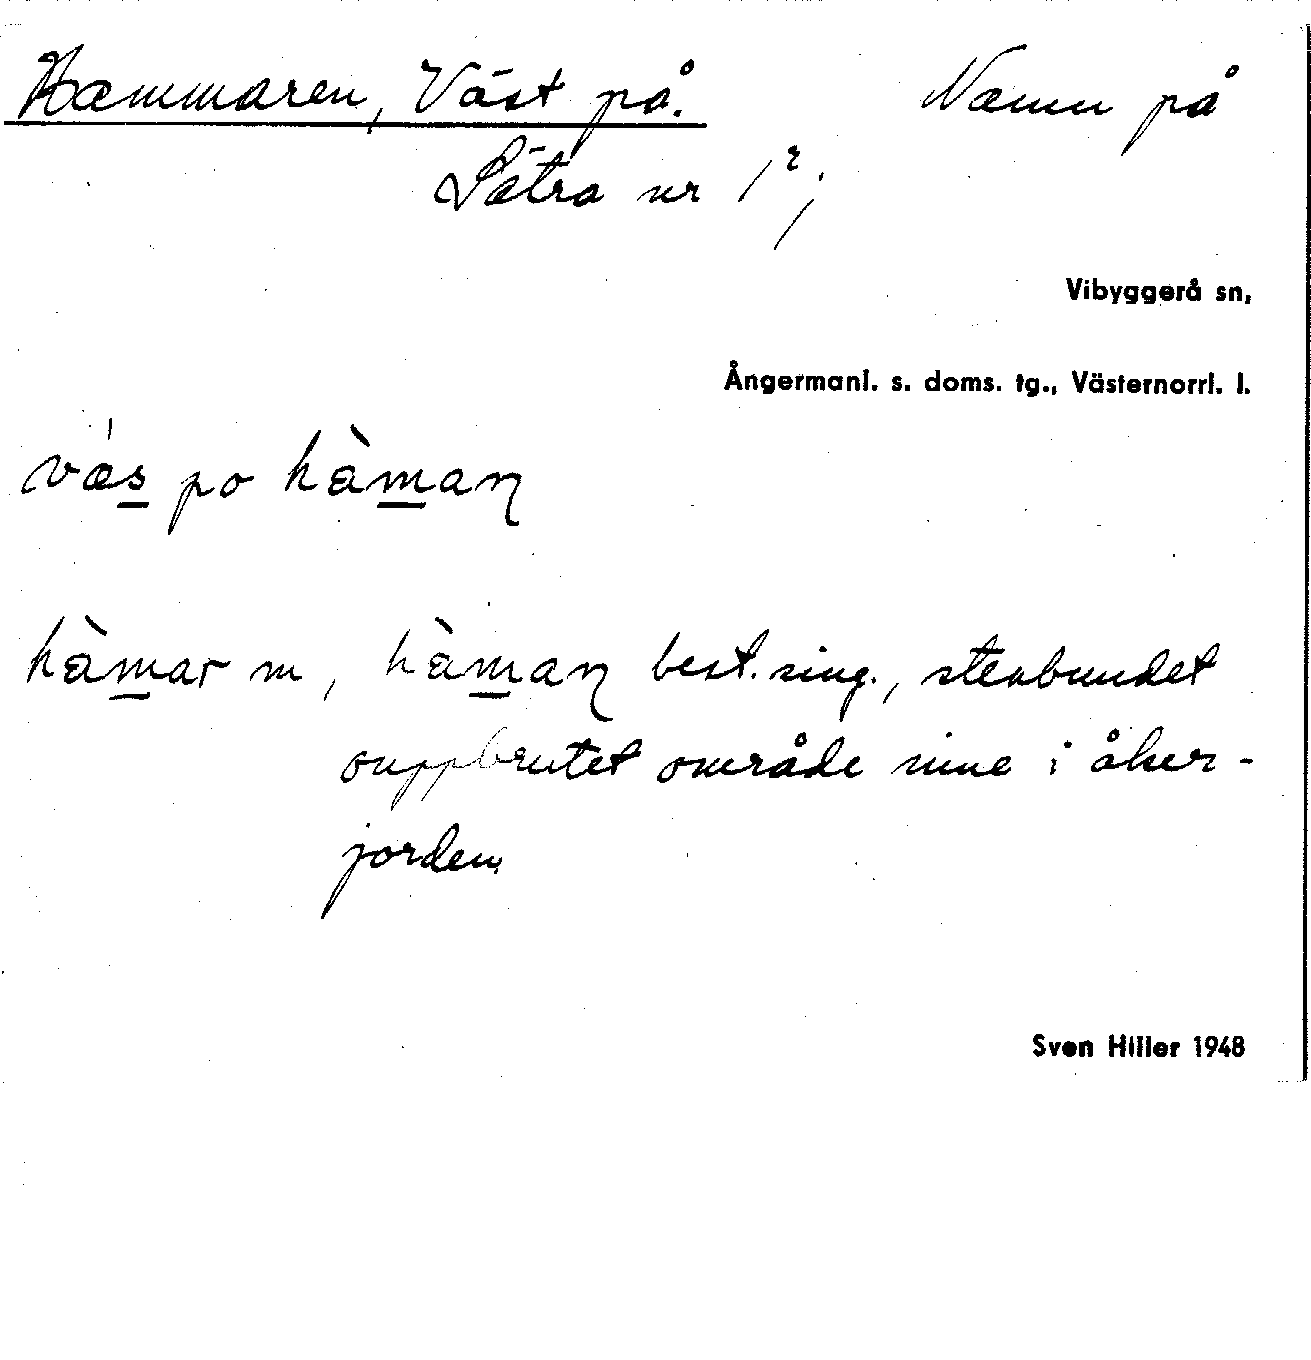 Hammaren, Väst på. Namn på
Sätra nr 1²;
Vibyggerå sn,
Ångermanl. s. doms. tg., Västernorrl. l.
vás po hàmaɳ
hàmar m, hàmaɳ best. sing., stenbundet
ouppbrutet område inne i åker-
jorden.
Sven Hiller 1948